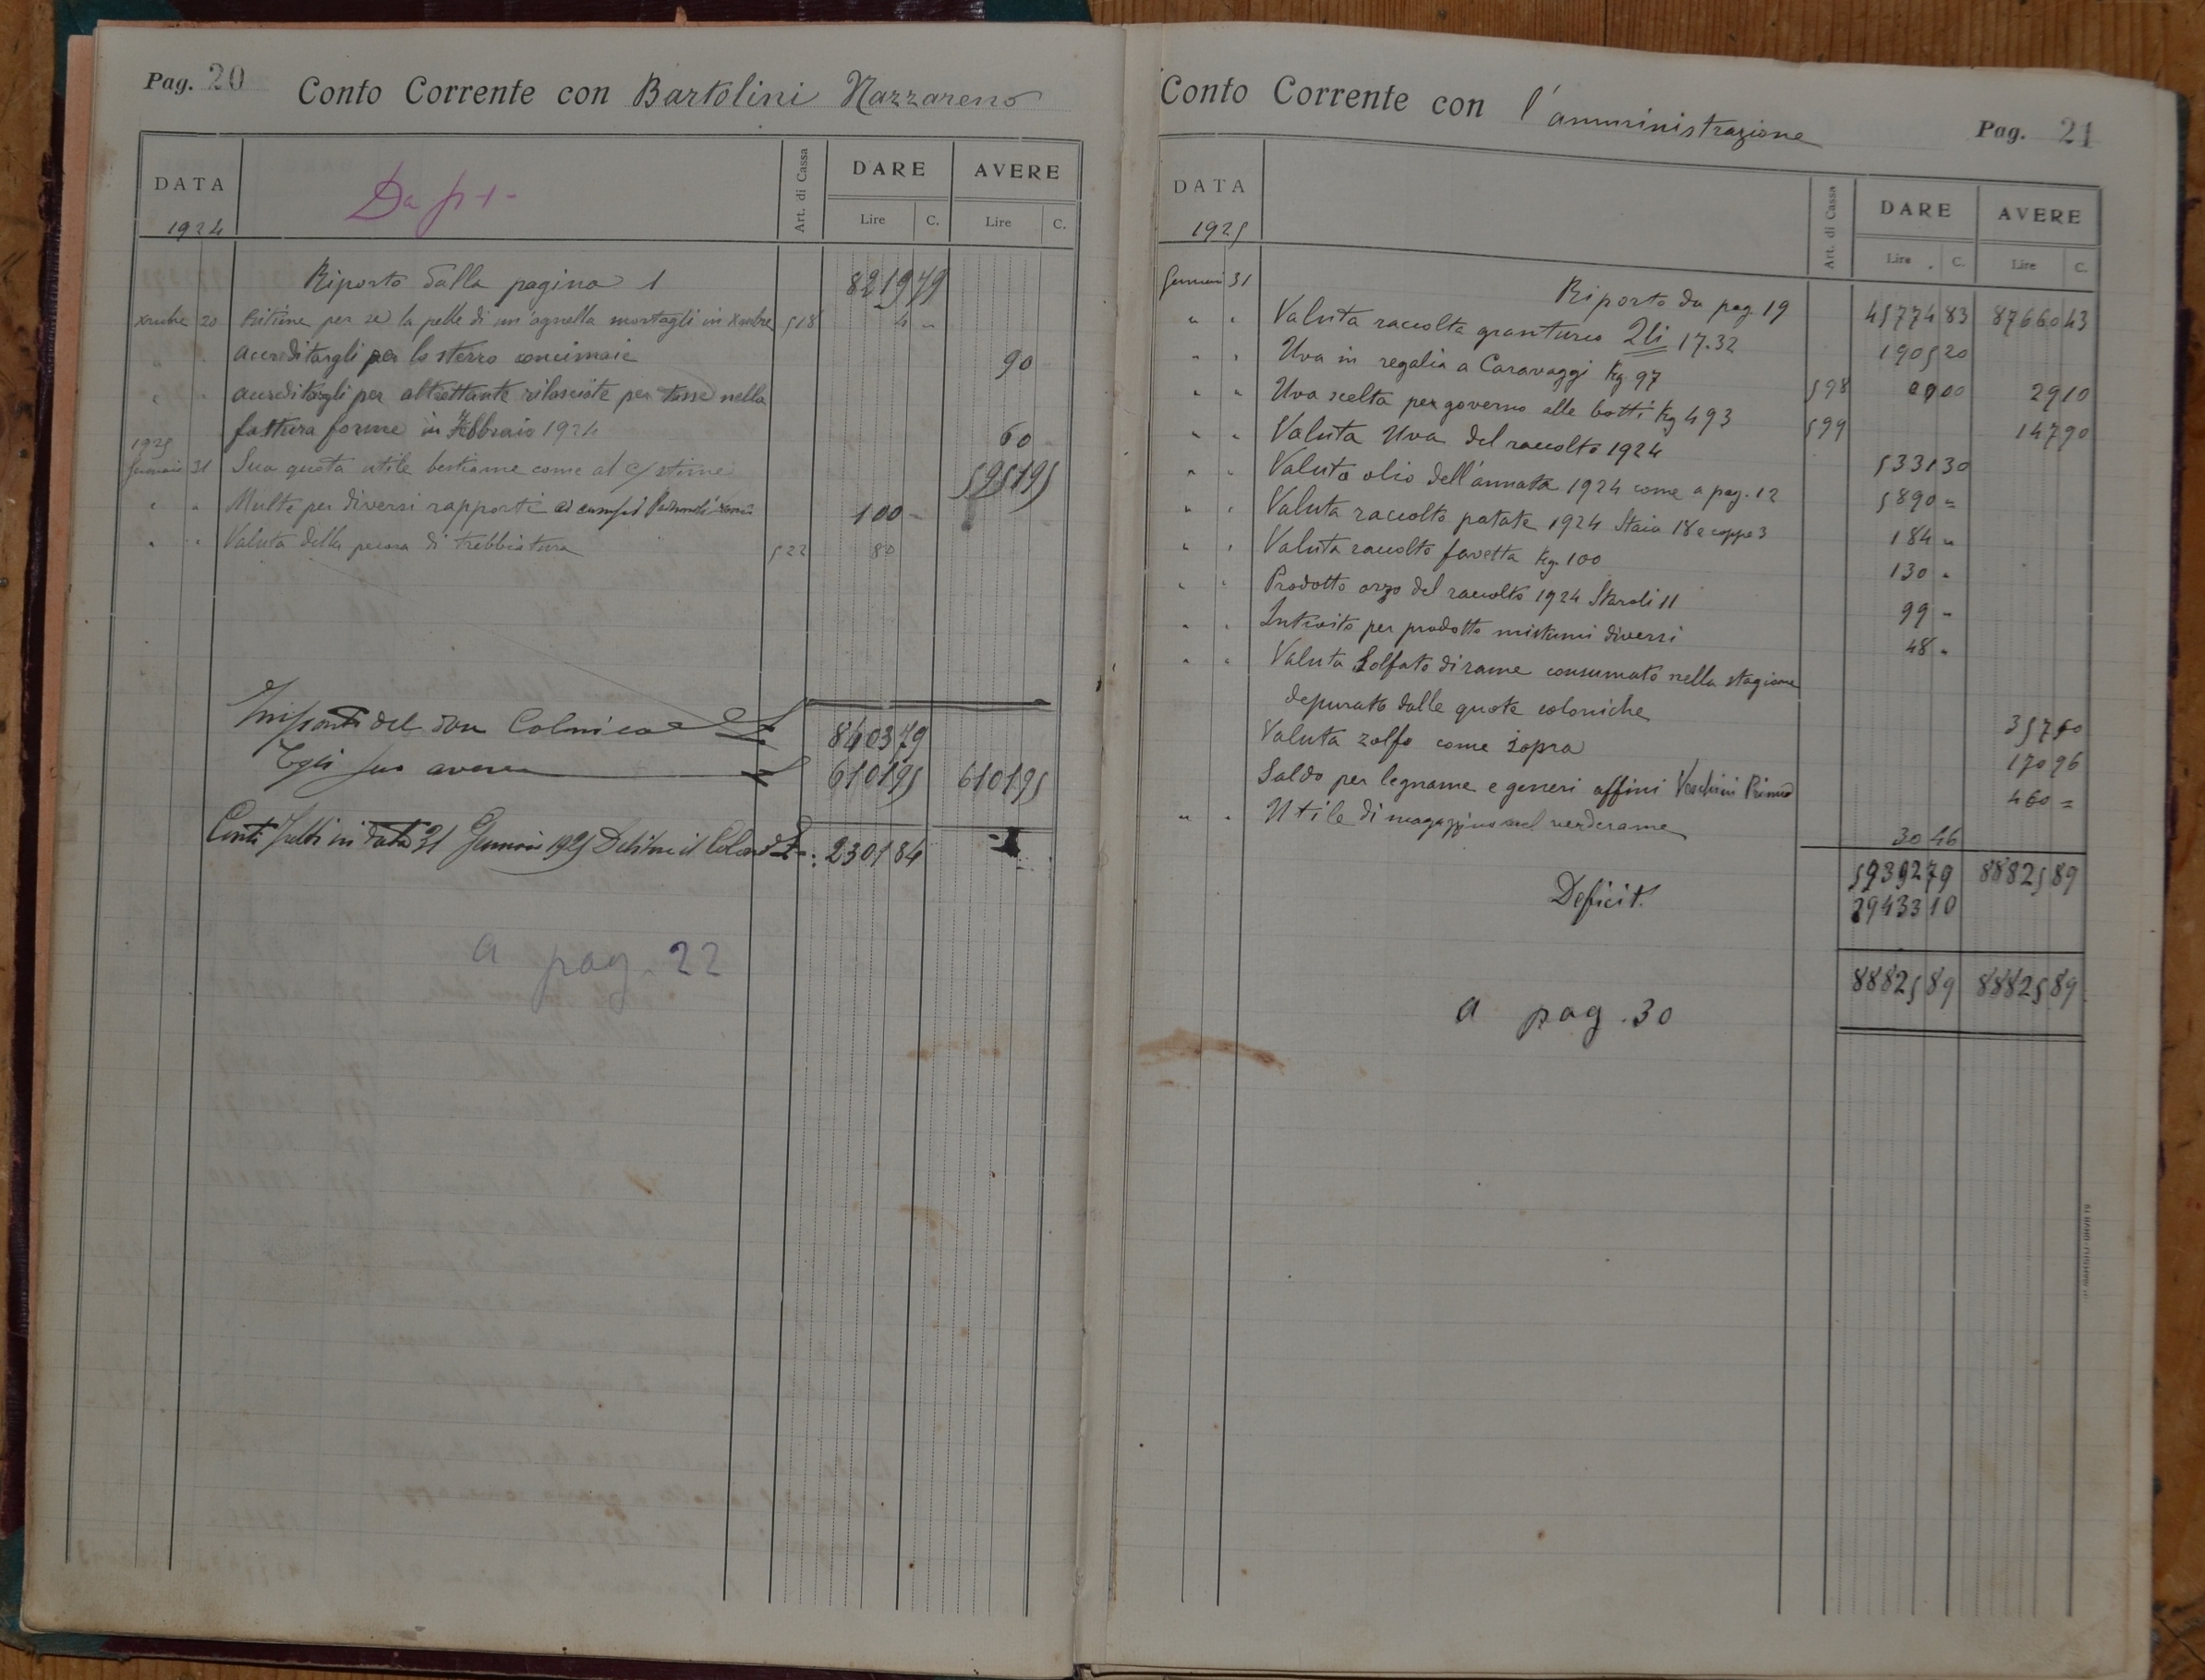 Pag. 20 Conto Corrente con Bartolini Nazzareno
DATA Art. di Cassa DARE AVERE
1924 Da p 1 Lire C. Lire C.
Riporto dalla pagina 1 8219 79
Xmbre 20 Ritiene per se la pelle di un'agnella mortagli in Xmbre 518 4 "
" " accreditargli per lo sterro concimaie 90
" " accreditargli per altrettante rilasciate per tasse nella
fattura forme in Febbraio 1924 60
1925
Gennaio 31 Sua quota utile bestiame come al c/ stime 5951 95
" " Multe per diversi rapporti 100 -
" " Valuta della pecora di trebbiatura 522 80
del dou Colonico 8403 79
Egli suo avere 6101 95 6101 95
Conti fatti in data 31 Gennaio 1925 Debitore il Colono £ : 2301 84
a pag. 22
Conto Corrente con l'amministrazione Pag. 21
DATA Art. di Cassa DARE AVERE
1925 Lire C. Lire C.
Gennaio 31 Riporto da pag. 19 45774 83 87660 43
" " Valuta raccolta granturco Qli 17.32 1905 20
" " Uva in regalia a Caravaggi Kg. 97 598 29 10
" " Uva scelta per governo alle botti Kg 493 599 147 90
" " Valuta Uva del raccolto 1924 5331 30
" " Valuta olio dell'annata 1924 come a pag. 12 5890 =
" " Valuta raccolto patate 1924 Staia 18 e coppe 3 184 "
" " Valuta raccolto favetta Kg. 100 130 "
" " Prodotto orzo del raccolto 1924 Staroli 11 99 "
" " Introito per prodotto mistumi diversi 48 "
" " Valuta Solfato di rame consumato nella stagione
depurato dalle quote coloniche 357 40
Valuta zolfo come sopra 170 96
Saldo per legname e generi affini 460 =
" " Utile di magazzino nel verderame 30 46
59392 79 88825 89
Deficit. 29433 10
88825 89 88825 89
a pag. 30